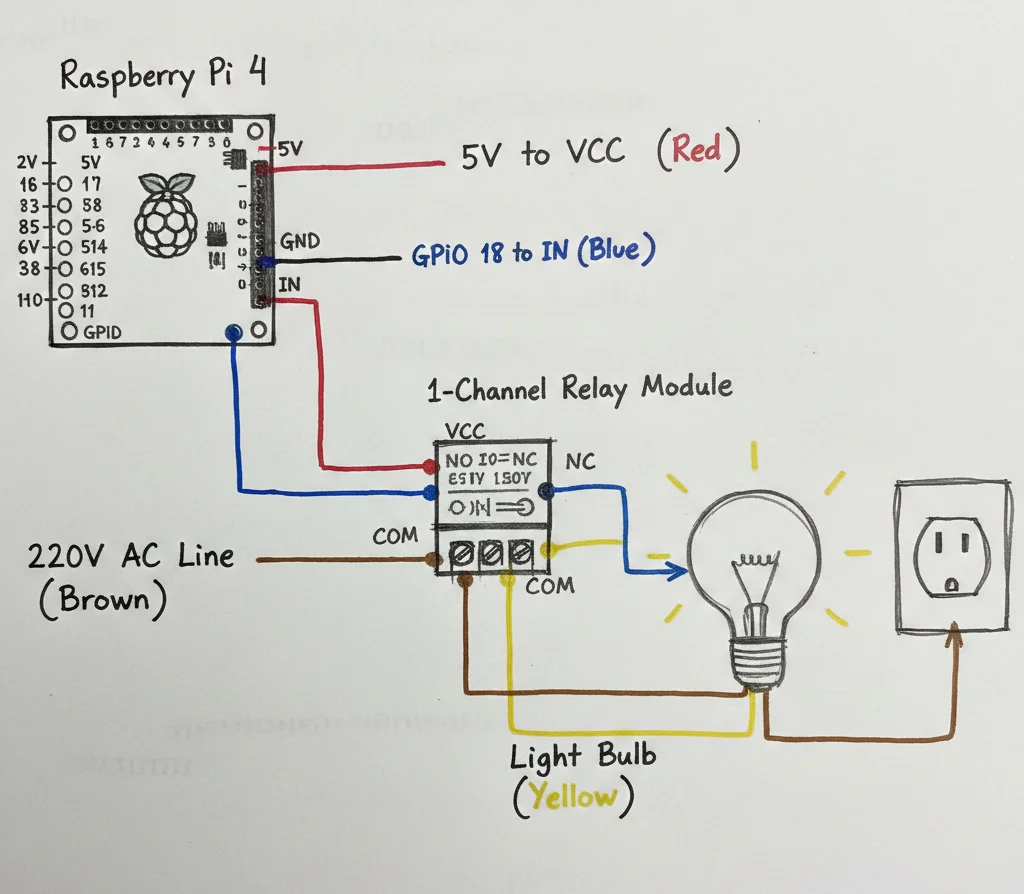 Raspberry Pi 4
1 6 7 2 4 4 5 7 3 0
5V
2V 5V
16 17
83 58
85 5-6
6V 514
38 615
512
110
11
GPID
GND
IN
5V to VCC (Red)
GPiO 18 to IN (Blue)
1-Channel Relay Module
VCC
NO IO=NC
ES1Y 1.50Y
NC
COM
COM
220V AC Line
(Brown)
Light Bulb
(Yellow)